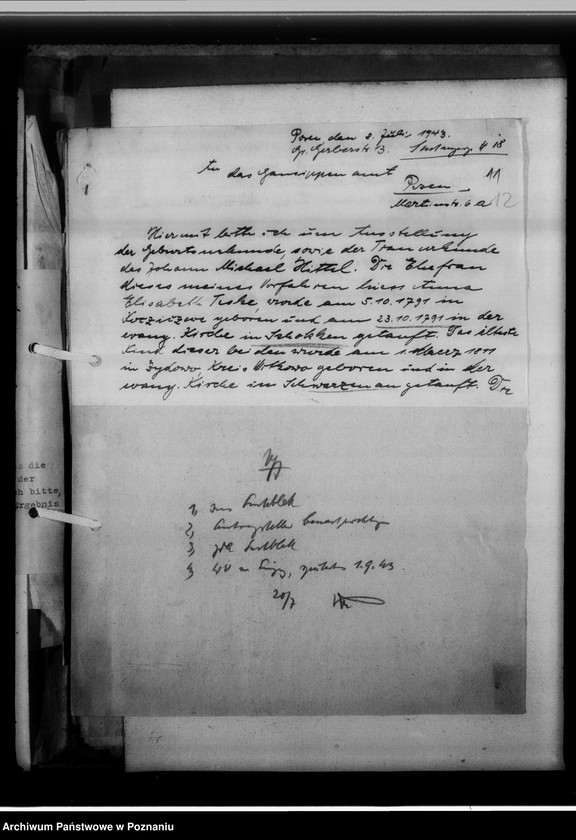 Posen den 8. Juli 1943.
Gr. Gerberstr. 3.
An das Gausippenamt
Posen
11
Martinstr. 6a
12
Hiermit bitte ich um Ausstellung
der Geburtsurkunde, sowie der Trauurkunde
des Johann Michael Hittel. Die Ehefrau
dieses meines Vorfahren hiess Anna
Elisabeth Teske, wurde am 5.10.1791 in
geboren und am 23.10.1791 in der
evang. Kirche in Schokken getauft. Das älteste
Kind dieser beiden wurde am 1. Maerz 1811
in Zydowo, Kreis Witkowo geboren und in der
evang. Kirche in Schwarzenau getauft. Die
s die
der
h bitte,
rgebnis
1,
2,
3,
4, 1.9.43.
20/7
Archiwum Państwowe w Poznaniu